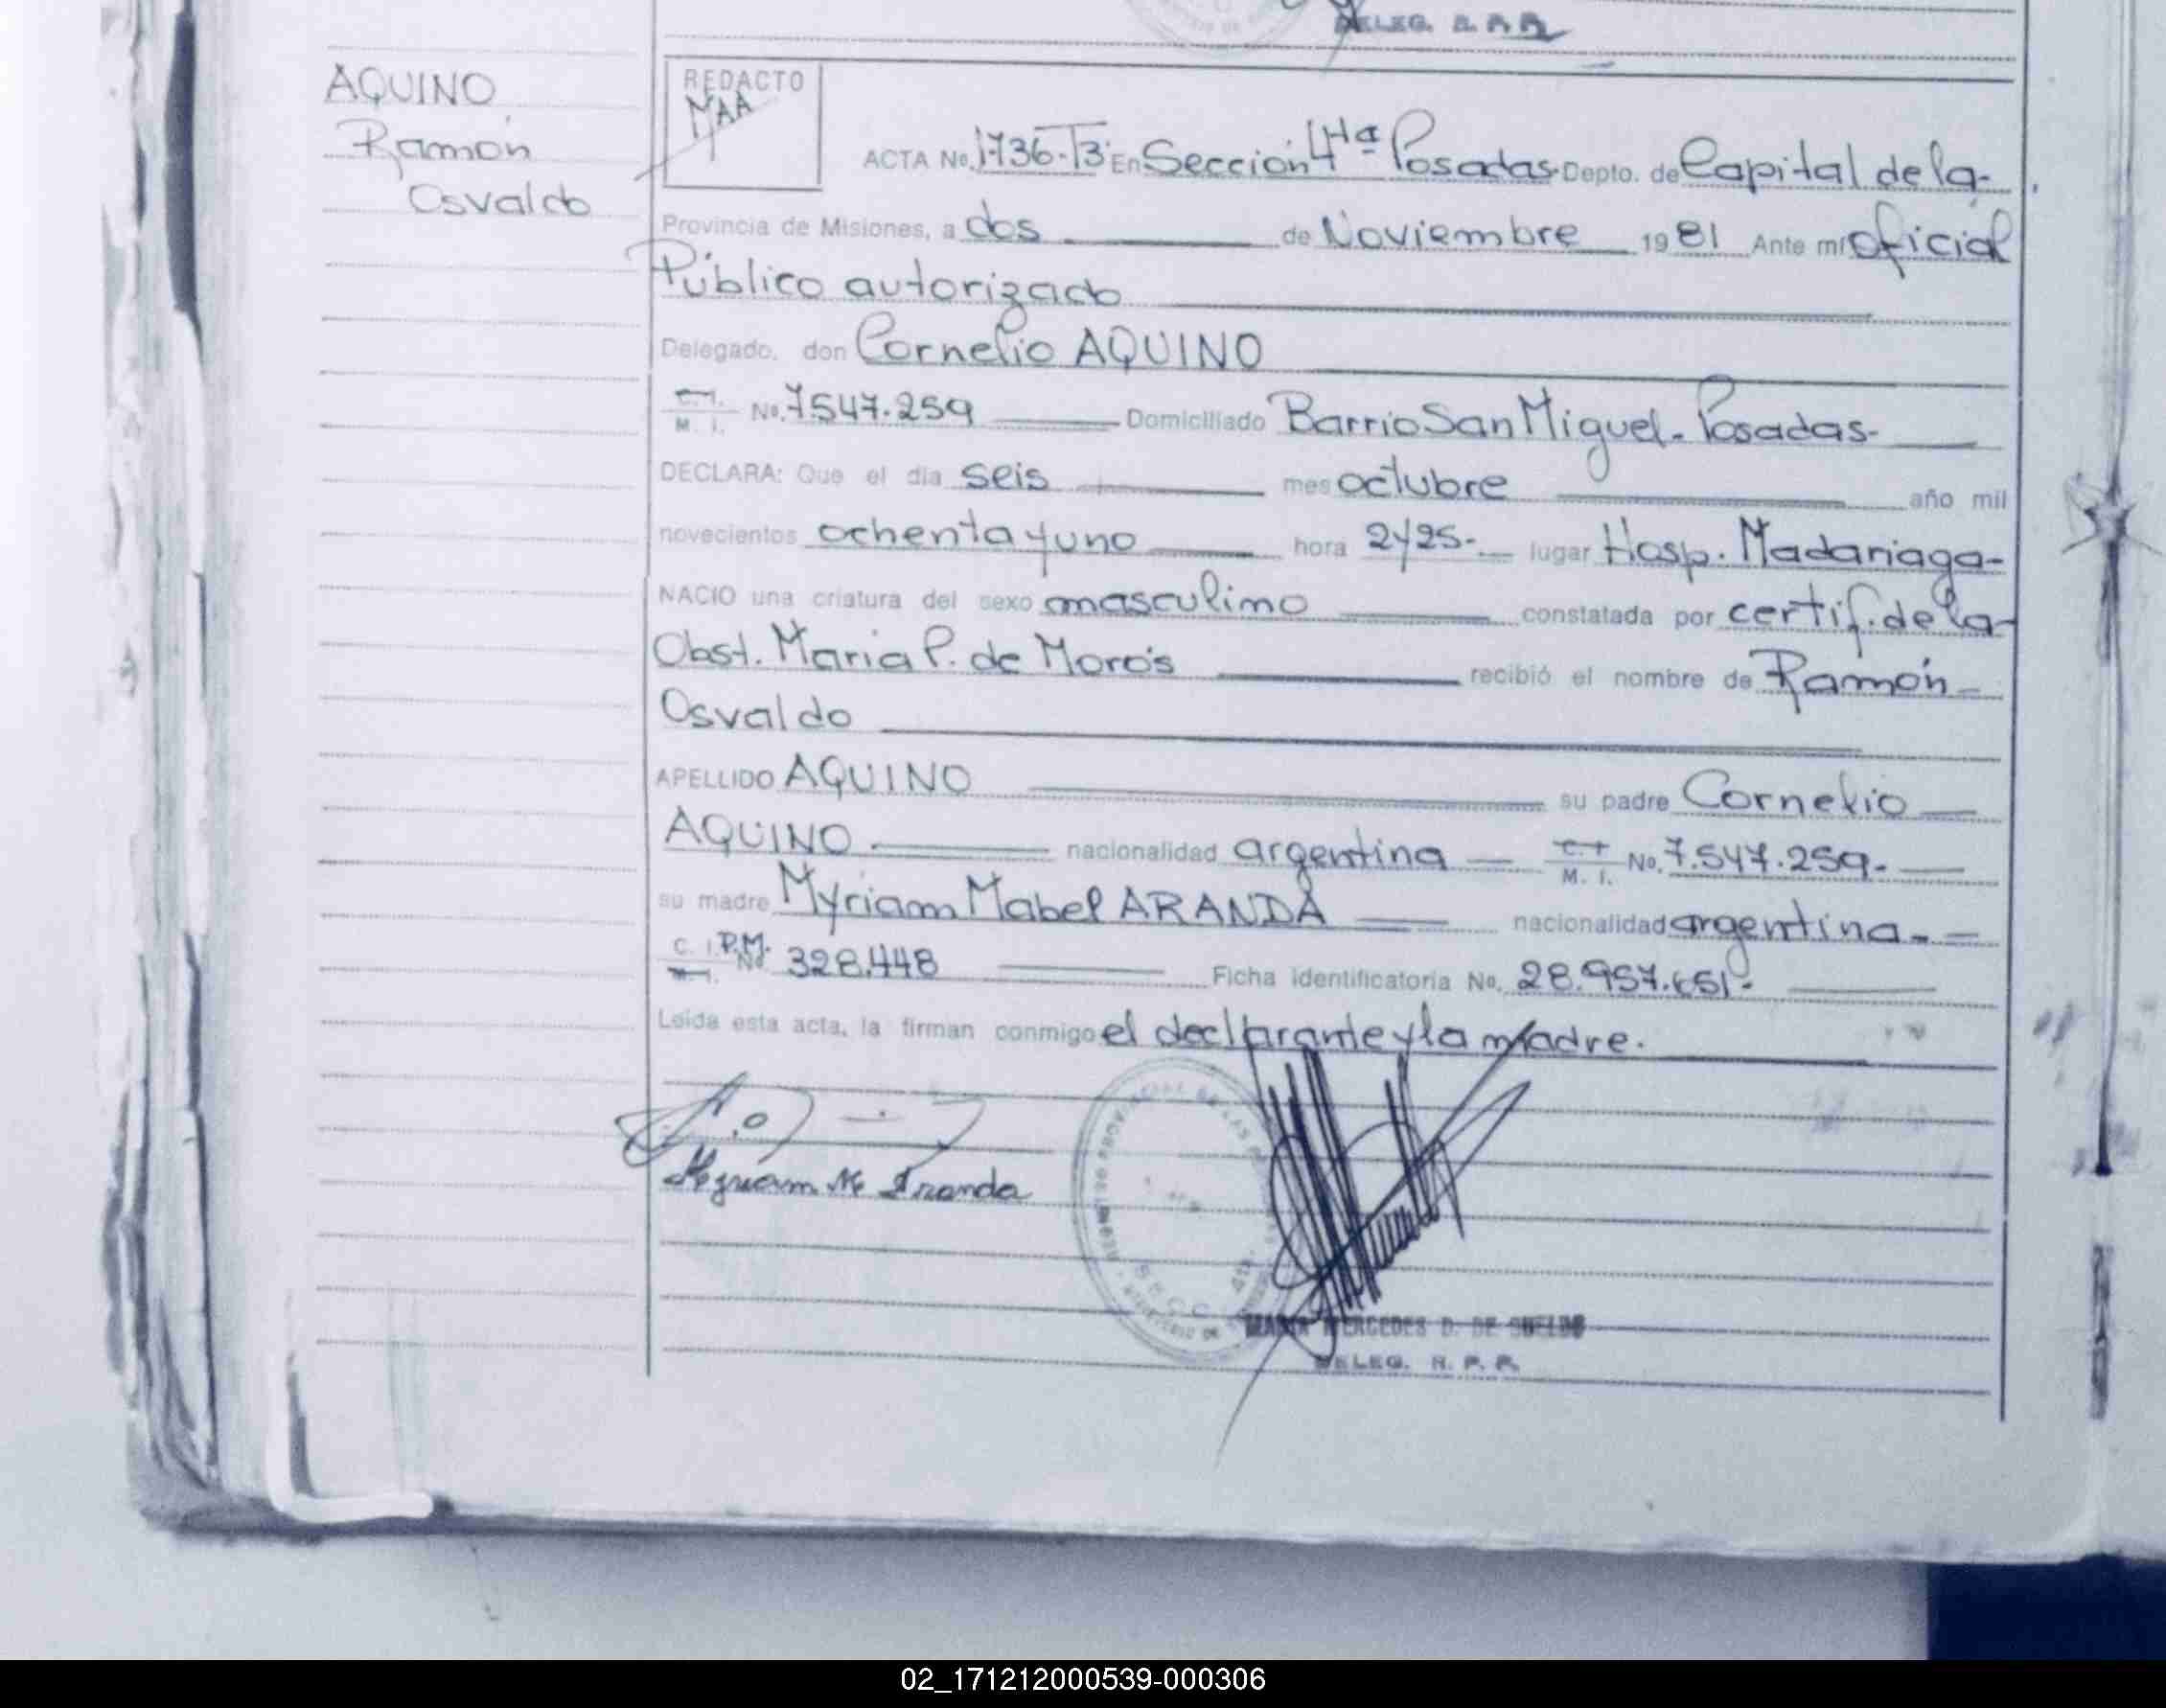 DELEG. R. P. P.
AQUINO
Ramón
Osvaldo
REDACTO
MAA
ACTA No. 1736-T3 En Sección 4ta Posadas Depto. de Capital de la-
Provincia de Misiones, a dos de Noviembre 1981 Ante mi oficial
Público autorizado
Delegado, don Cornelio AQUINO
C. I.
M. I. No. 7547.259 Domiciliado Barrio San Miguel- Posadas-
DECLARA: Que el dia seis mes octubre año mil
novecientos ochenta y uno hora 2y25- lugar Hosp. Madariaga-
NACIO una criatura del sexo masculino constatada por certif. de la-
Obst. Maria P. de Moro's recibió el nombre de Ramón-
Osvaldo
APELLIDO AQUINO su padre Cornelio
AQUINO nacionalidad argentina C. I.
M. I. No. 7.547.259-
su madre Myriam Mabel ARANDA nacionalidad argentina-
C. I. P.M.
M. I. No 328.448 Ficha identificatoria No. 28.957.651-
Leida esta acta, la firman conmigo el declarante y la madre.
Myriam M Aranda
SECC. 4ta.
MARIA MERCEDES D. DE SUELDO
DELEG. R. P. P.
02_171212000539-000306